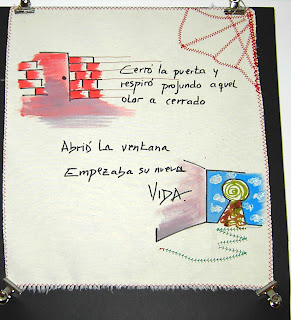 Cerró la puerta y
respiró profundo aquel
olor a cerrado
Abrió La ventana
Empezaba su nueva
VIDA.